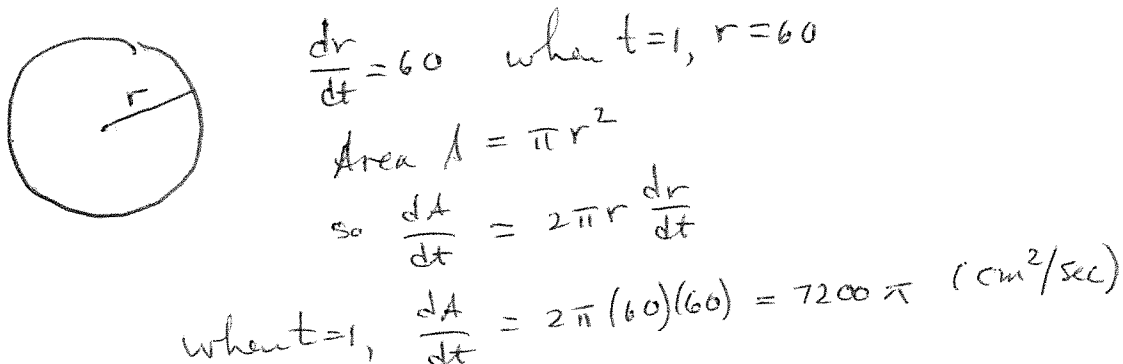 r
dr/dt = 60 when t=1, r=60
Area A = πr²
so dA/dt = 2πr dr/dt
when t=1, dA/dt = 2π(60)(60) = 7200π (cm²/sec)